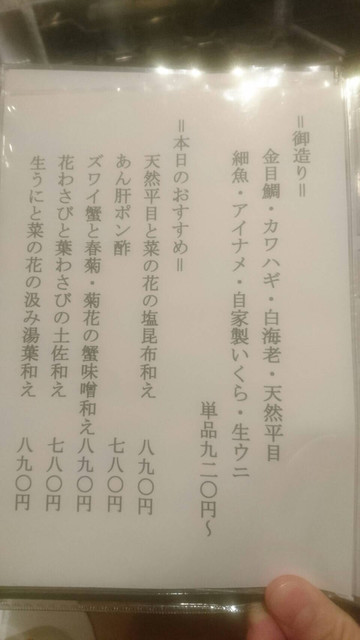 ＝御造り＝
金目鯛・カワハギ・白海老・天然平目
細魚・アイナメ・自家製いくら・生ウニ
単品九二〇円～
＝本日のおすすめ＝
天然平目と菜の花の塩昆布和え 八九〇円
あん肝ポン酢 七八〇円
ズワイ蟹と春菊・菊花の蟹味噌和え 八九〇円
花わさびと葉わさびの土佐和え 七八〇円
生うにと菜の花の汲み湯葉和え 八九〇円